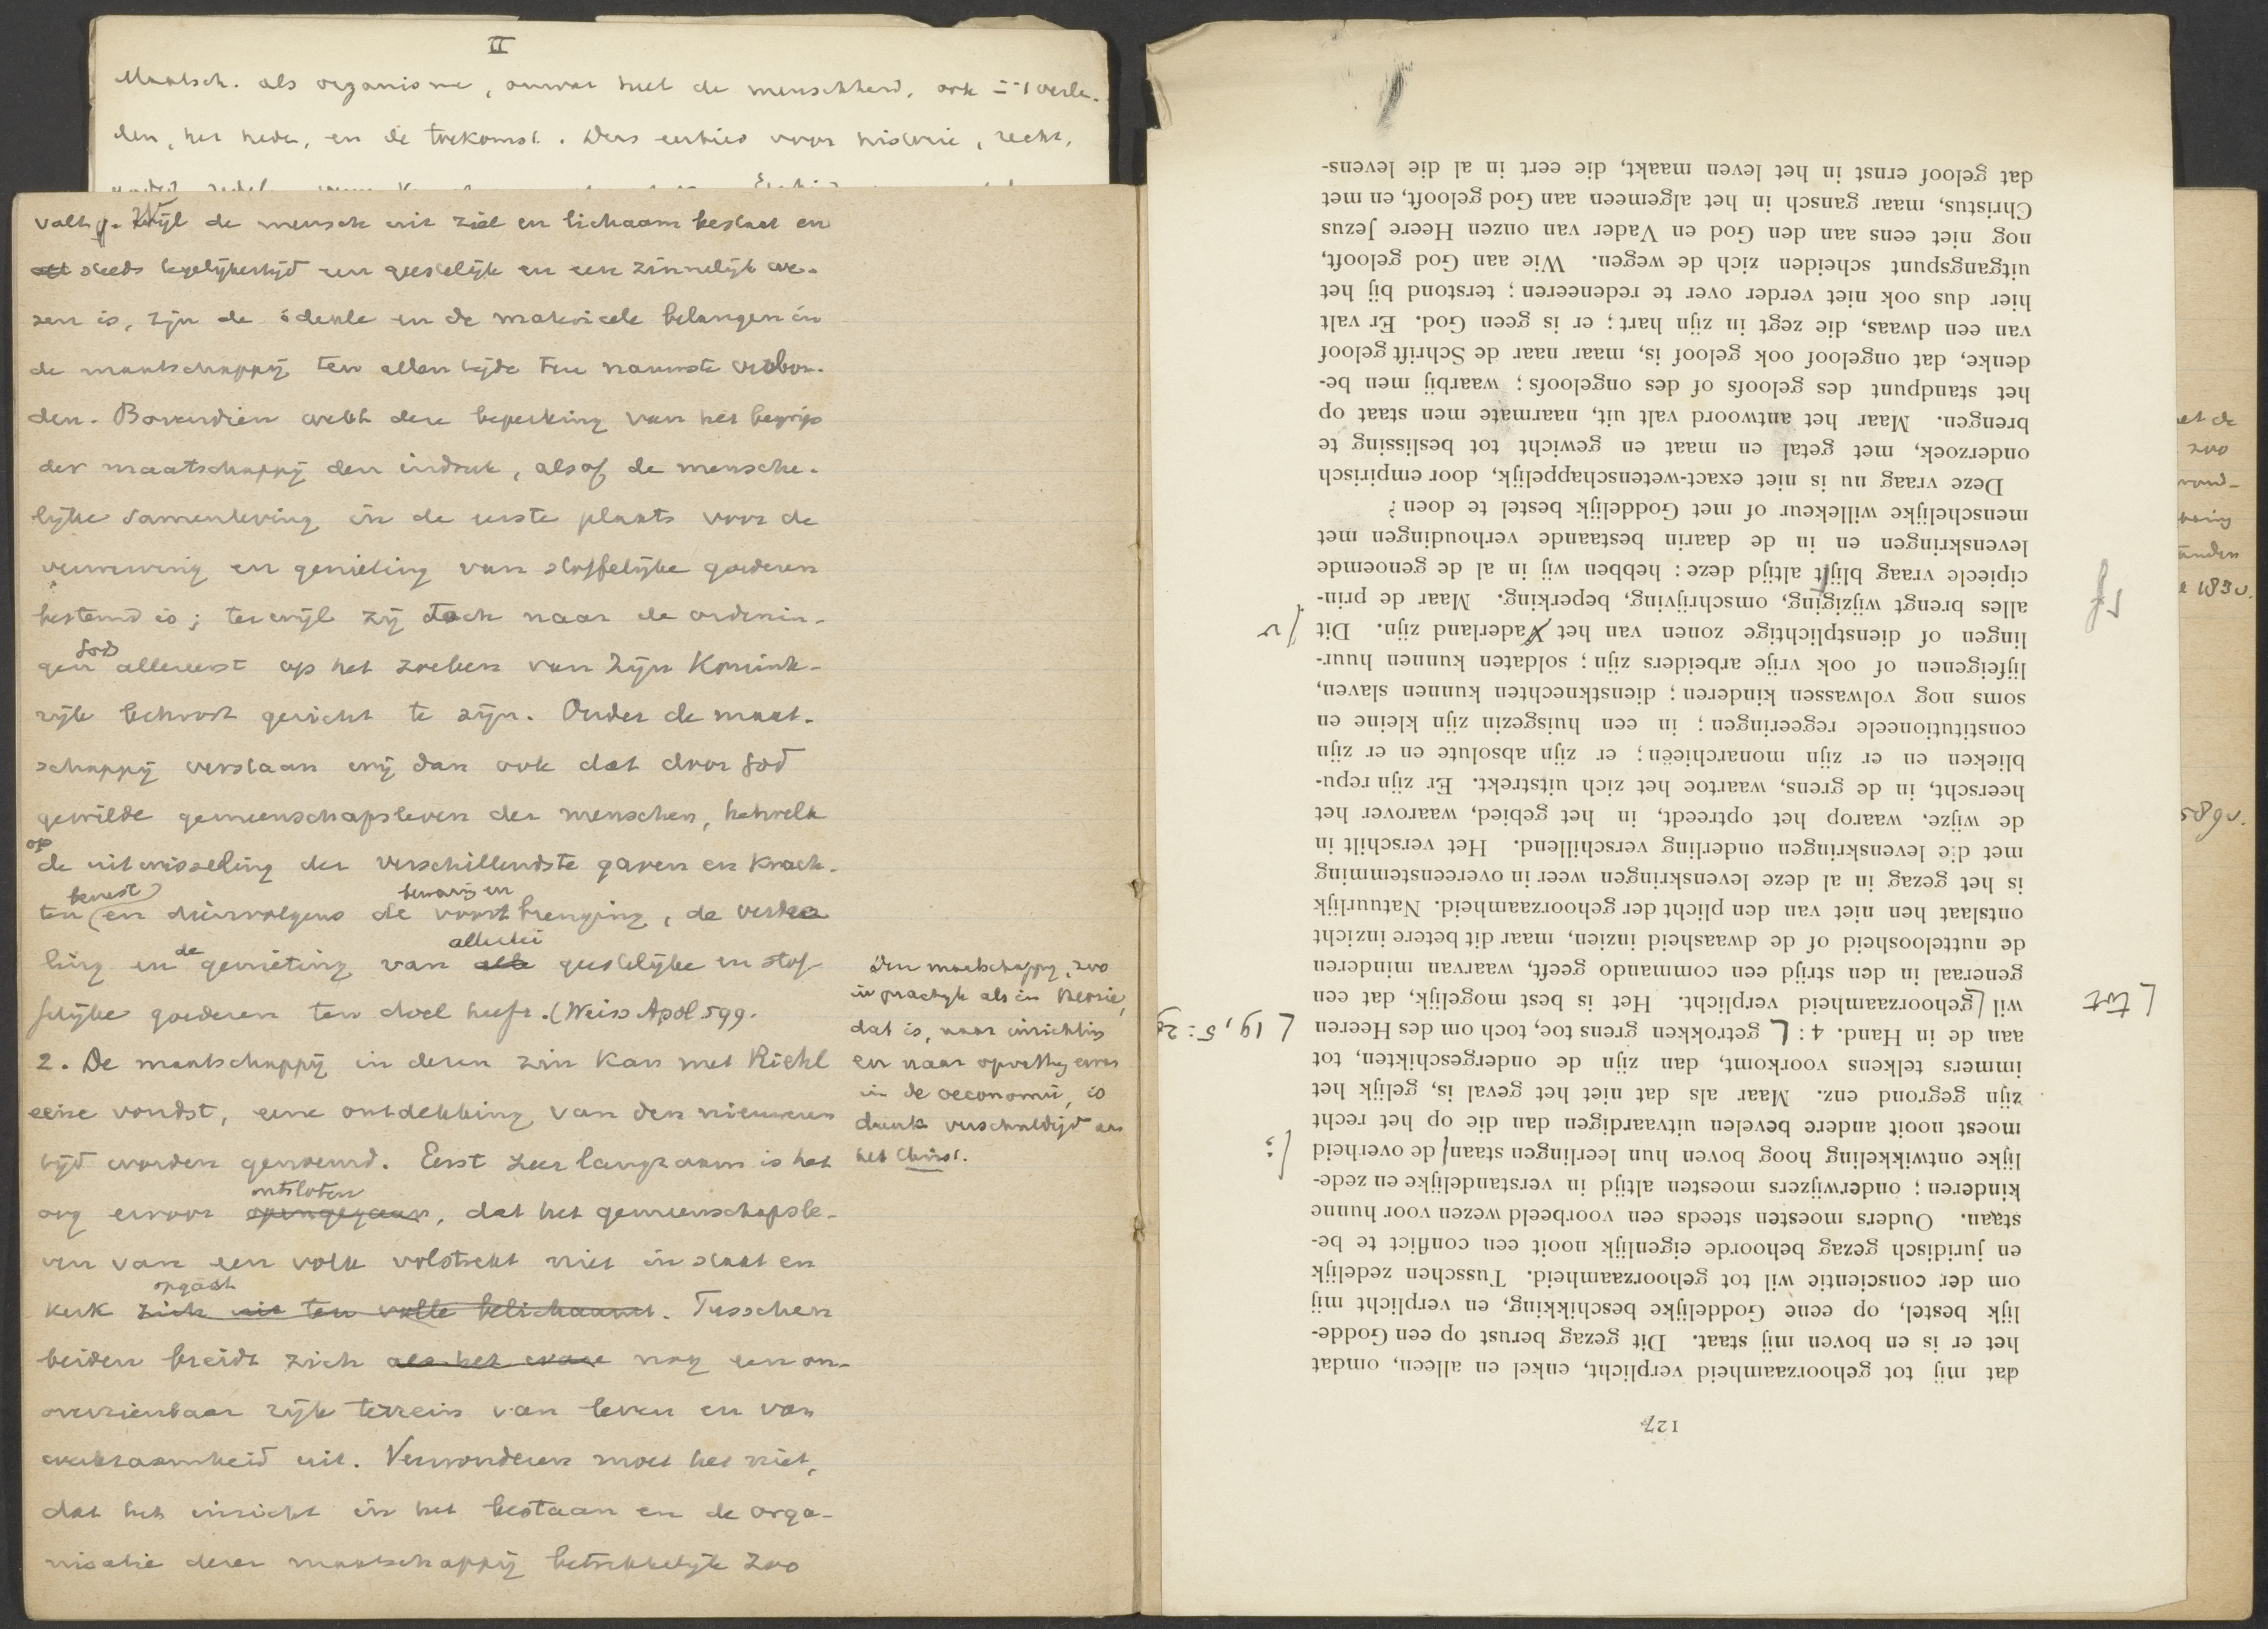 II
Maatsch. als organisme, omvat heel de menschheid, ook in 't verle-
den, het heden, en de toekomst. Dus eerbied voor historie, recht,
valt. Wijl de mensch uit ziel en lichaam bestaat en
steeds tegelijkertijd een geestelijk en een zinnelijk we-
zen is, zijn de ideale en de materieele belangen in
de maatschappij ten allen tijde ten nauwste verbon-
den. Bovendien wekt deze beperking van het begrip
der maatschappij den indruk, alsof de mensche-
lijke samenleving in de eerste plaats voor de
verwerving en genieting van stoffelijke goederen
bestemd is; terwijl zij toch naar de ordenin-
gen Gods allereerst op het zoeken van Zijn Konink-
rijk behoort gericht te zijn. Onder de maat-
schappij verstaan wij dan ook dat door God
gewilde gemeenschapsleven der menschen, hetwelk
op de uitwisseling der verschillendste gaven en krach-
ten (berust) en dienvolgens de bewaring en voortbrenging, de verdee
ling en de genieting van alle allerlei geestelijke en stof-
felijke goederen ten doel heeft. (Weiss Apol 599.
2. De maatschappij in dezen zin kan met Riehl
eene vondst, eene ontdekking van den nieuweren
tijd worden genoemd. Eerst zeer langzaam is het
oog ervoor opengegaan ontsloten, dat het gemeenschapsle-
ven van een volk volstrekt niet in staat en
kerk zich niet ten volle belichaamt opgaat. Tusschen
beiden breidt zich als het ware nog een on-
overzienbaar rijk terrein van leven en van
werkzaamheid uit. Verwonderen moet het niet,
dat het inzicht in het bestaan en de orga-
nisatie dezer maatschappij betrekkelijk zoo
Den maatschappij, zoo
in practijk als in theorie,
dat is, naar inrichting
en naar opvatting ervan
in de oeconomie, is
dank verschuldigd aan
het Christ.
127
dat mij tot gehoorzaamheid verplicht, enkel en alleen, omdat
het er is en boven mij staat. Dit gezag berust op een Godde-
lijk bestel, op eene Goddelijke beschikking, en verplicht mij
om der conscientie wil tot gehoorzaamheid. Tusschen zedelijk
en juridisch gezag behoorde eigenlijk nooit een conflict te be-
staan. Ouders moesten steeds een voorbeeld wezen voor hunne
kinderen; onderwijzers moesten altijd in verstandelijke en zede-
lijke ontwikkeling hoog boven hun leerlingen staan/ de overheid /;
moest nooit andere bevelen uitvaardigen dan die op het recht
zijn gegrond enz. Maar als dat niet het geval is, gelijk het
immers telkens voorkomt, dan zijn de ondergeschikten, tot
aan de in Hand. 4: getrokken grens toe, toch om des Heeren 19, 5:29
wil gehoorzaamheid verplicht. Het is best mogelijk, dat een tot
generaal in den strijd een commando geeft, waarvan minderen
de nutteloosheid of de dwaasheid inzien, maar dit betere inzicht
ontslaat hen niet van den plicht der gehoorzaamheid. Natuurlijk
is het gezag in al deze levenskringen weer in overeenstemming
met die levenskringen onderling verschillend. Het verschilt in
de wijze. waarop het optreedt, in het gebied, waarover het
heerscht, in de grens, waartoe het zich uitstrekt. Er zijn repu-
blieken en er zijn monarchieën; er zijn absolute en er zijn
constitutioneele regeeringen; in een huisgezin zijn kleine en
soms nog volwassen kinderen; dienstknechten kunnen slaven,
lijfeigenen of ook vrije arbeiders zijn; soldaten kunnen huur-
lingen of dienstplichtige zonen van het Vaderland zijn. Dit /v
alles brengt wijziging, omschrijving, beperking. Maar de prin-
cipieele vraag blijft altijd deze: hebben wij in al de genoemde f
levenskringen en in de daarin bestaande verhoudingen met
menschelijke willekeur of met Goddelijk bestel te doen?
Deze vraag nu is niet exact-wetenschappelijk, door empirisch
onderzoek, met getal en maat en gewicht tot beslissing te
brengen. Maar het antwoord valt uit, naarmate men staat op
het standpunt des geloofs of des ongeloofs; waarbij men be-
denke, dat ongeloof ook geloof is, maar naar de Schrift geloof
van een dwaas, die zegt in zijn hart; er is geen God. Er valt
hier dus ook niet verder over te redeneeren; terstond bij het
uitgangspunt scheiden zich de wegen. Wie aan God gelooft,
nog niet eens aan den God en Vader van onzen Heere Jezus
Christus, maar gansch in het algemeen aan God gelooft, en met
dat geloof ernst in het leven maakt, die eert in al die levens-
et de
zoo
rond-
anden
183v.
589v.